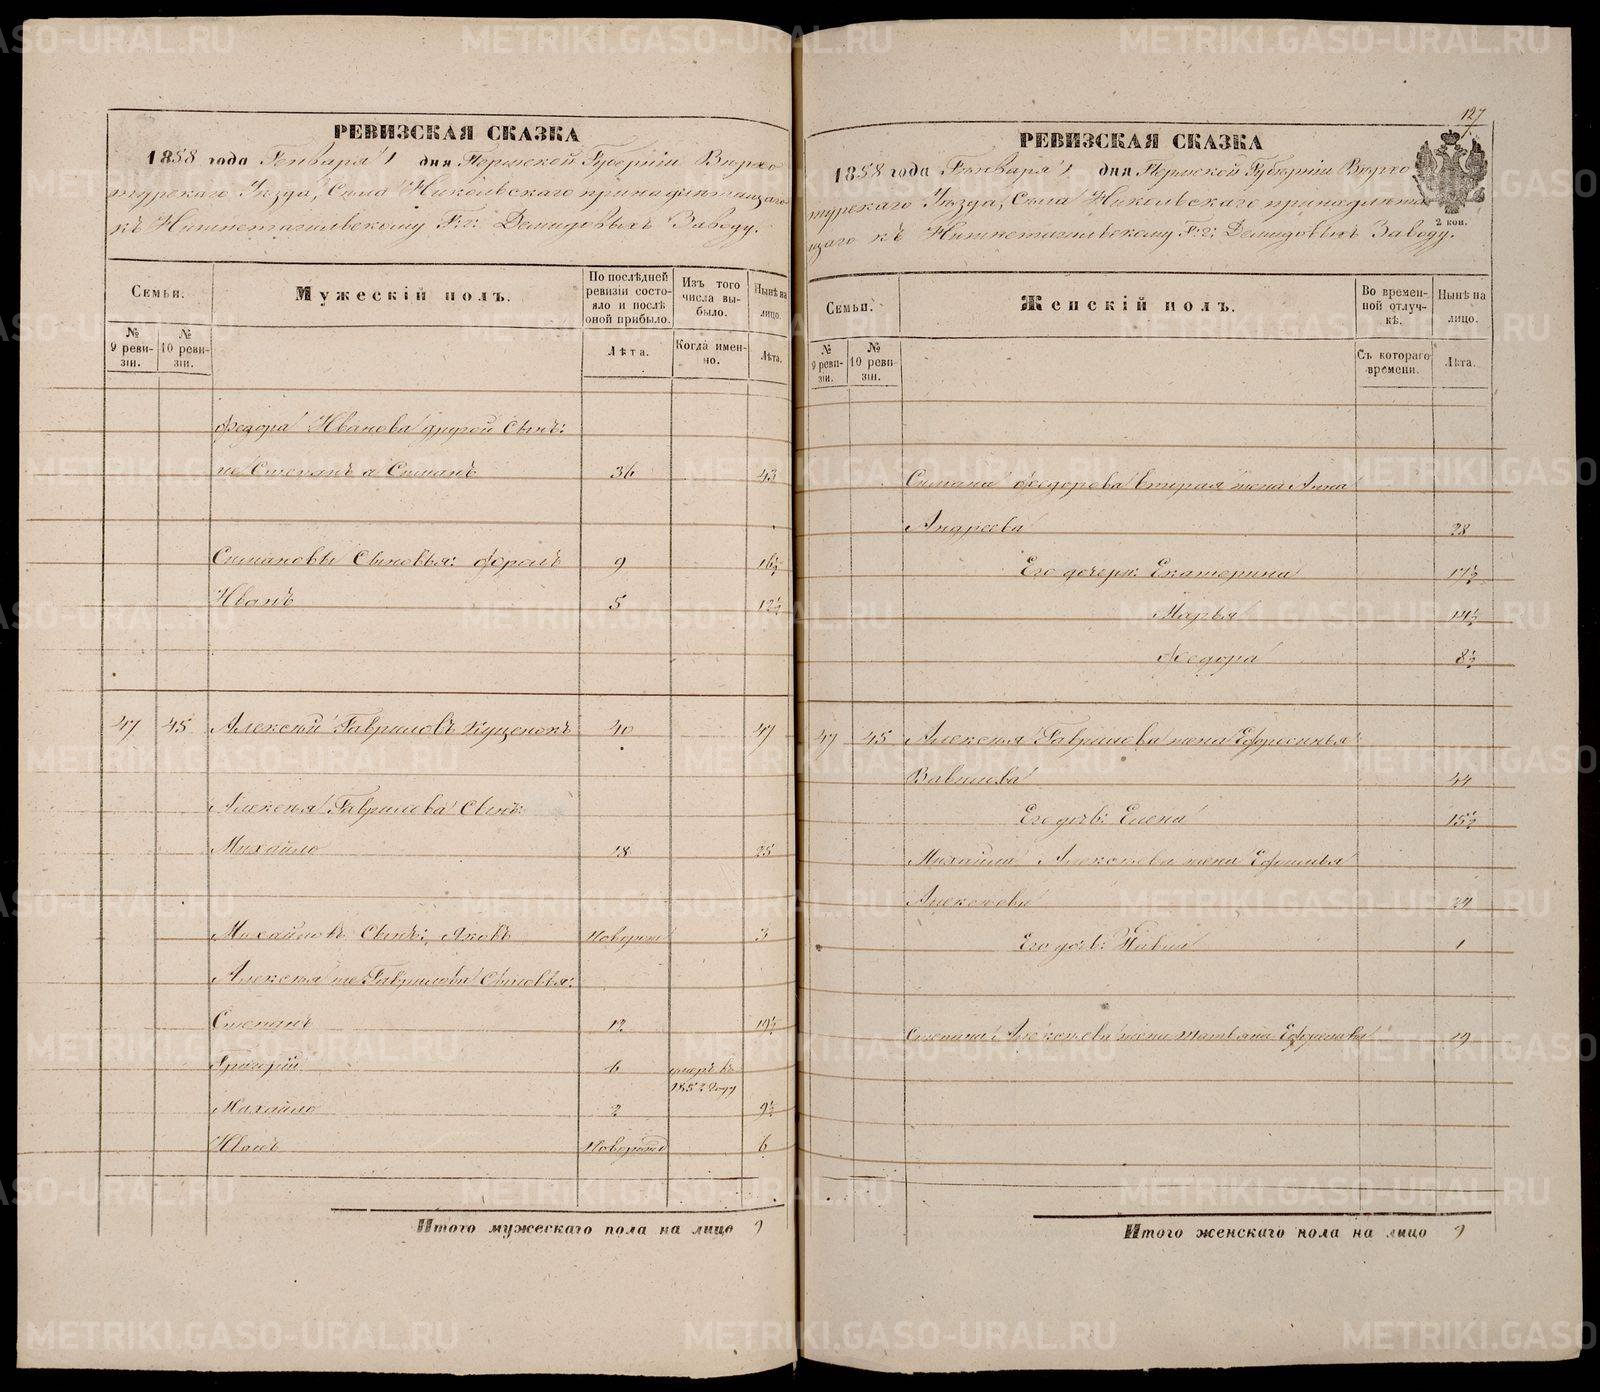 РЕВИЗСКАЯ СКАЗКА
1858 года Генваря 1 дня Пермской Губерніи Верхо
турскаго Уѣзда, Села Никольскаго принадлежащаго
къ Нижнетагильскому Г.г: Демидовыхъ Заводу.
Семьи.
Мужескій полъ.
По послѣдней ревизіи состояло и послѣ оной прибыло.
Изъ того числа выбыло.
Нынѣ на лицо.
№ 9 ревизіи.
№ 10 ревизіи.
Лѣта.
Когда именно.
Лѣта.
Федора Иванова другой сынъ:
не Степанъ а Симанъ 36 43
Симановы Сыновья: Фролъ 9 16½
Иванъ 5 12½
47 45 Алексѣй Гавриловъ Куценокъ 40 47
Алексѣя Гаврилова Сынъ:
Михайло 18 25
Михайловъ Сынъ: Яковъ Новорожд 3
Алексѣя же Гаврилова Сыновья:
Степанъ 12 19½
Григорій 6 умеръ въ 1852 году
Михайло 2 9½
Иванъ Новорожд 6
Итого мужескаго пола на лицо 9
127
РЕВИЗСКАЯ СКАЗКА
1858 года Генваря 1 дня Пермской Губерніи Верхо
турскаго Уѣзда, Села Никольскаго принадлежа
щаго къ Нижнетагильскому Г.г: Демидовыхъ Заводу.
2 коп.
Семьи.
Женскій полъ.
Во временной отлучкѣ.
Нынѣ на лицо.
№ 9 ревизіи.
№ 10 ревизіи.
Съ котораго времени.
Лѣта.
Симана Федорова вторая жена Анна
Андреева 28
Его дочери: Екатерина 17½
Марья 14½
Федора 8½
47 45 Алексѣя Гаврилова жена Ефросинья
44
Его дочь: Елена 15½
Михайла Алексѣева жена
Алексѣева 24
Его дочь: 1
Степана Алексѣева жена Татьяна 19
Итого женскаго пола на лицо 9
METRIKI.GASO-URAL.RU